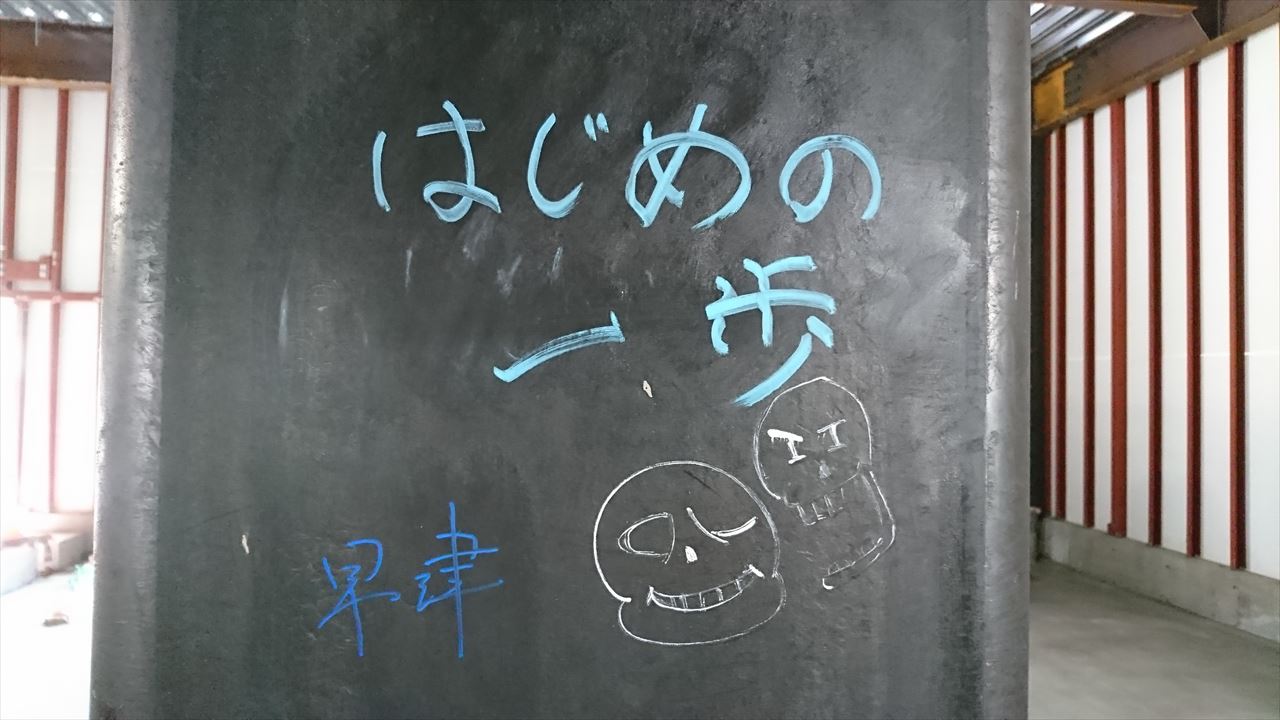 はじめの
一歩
早津